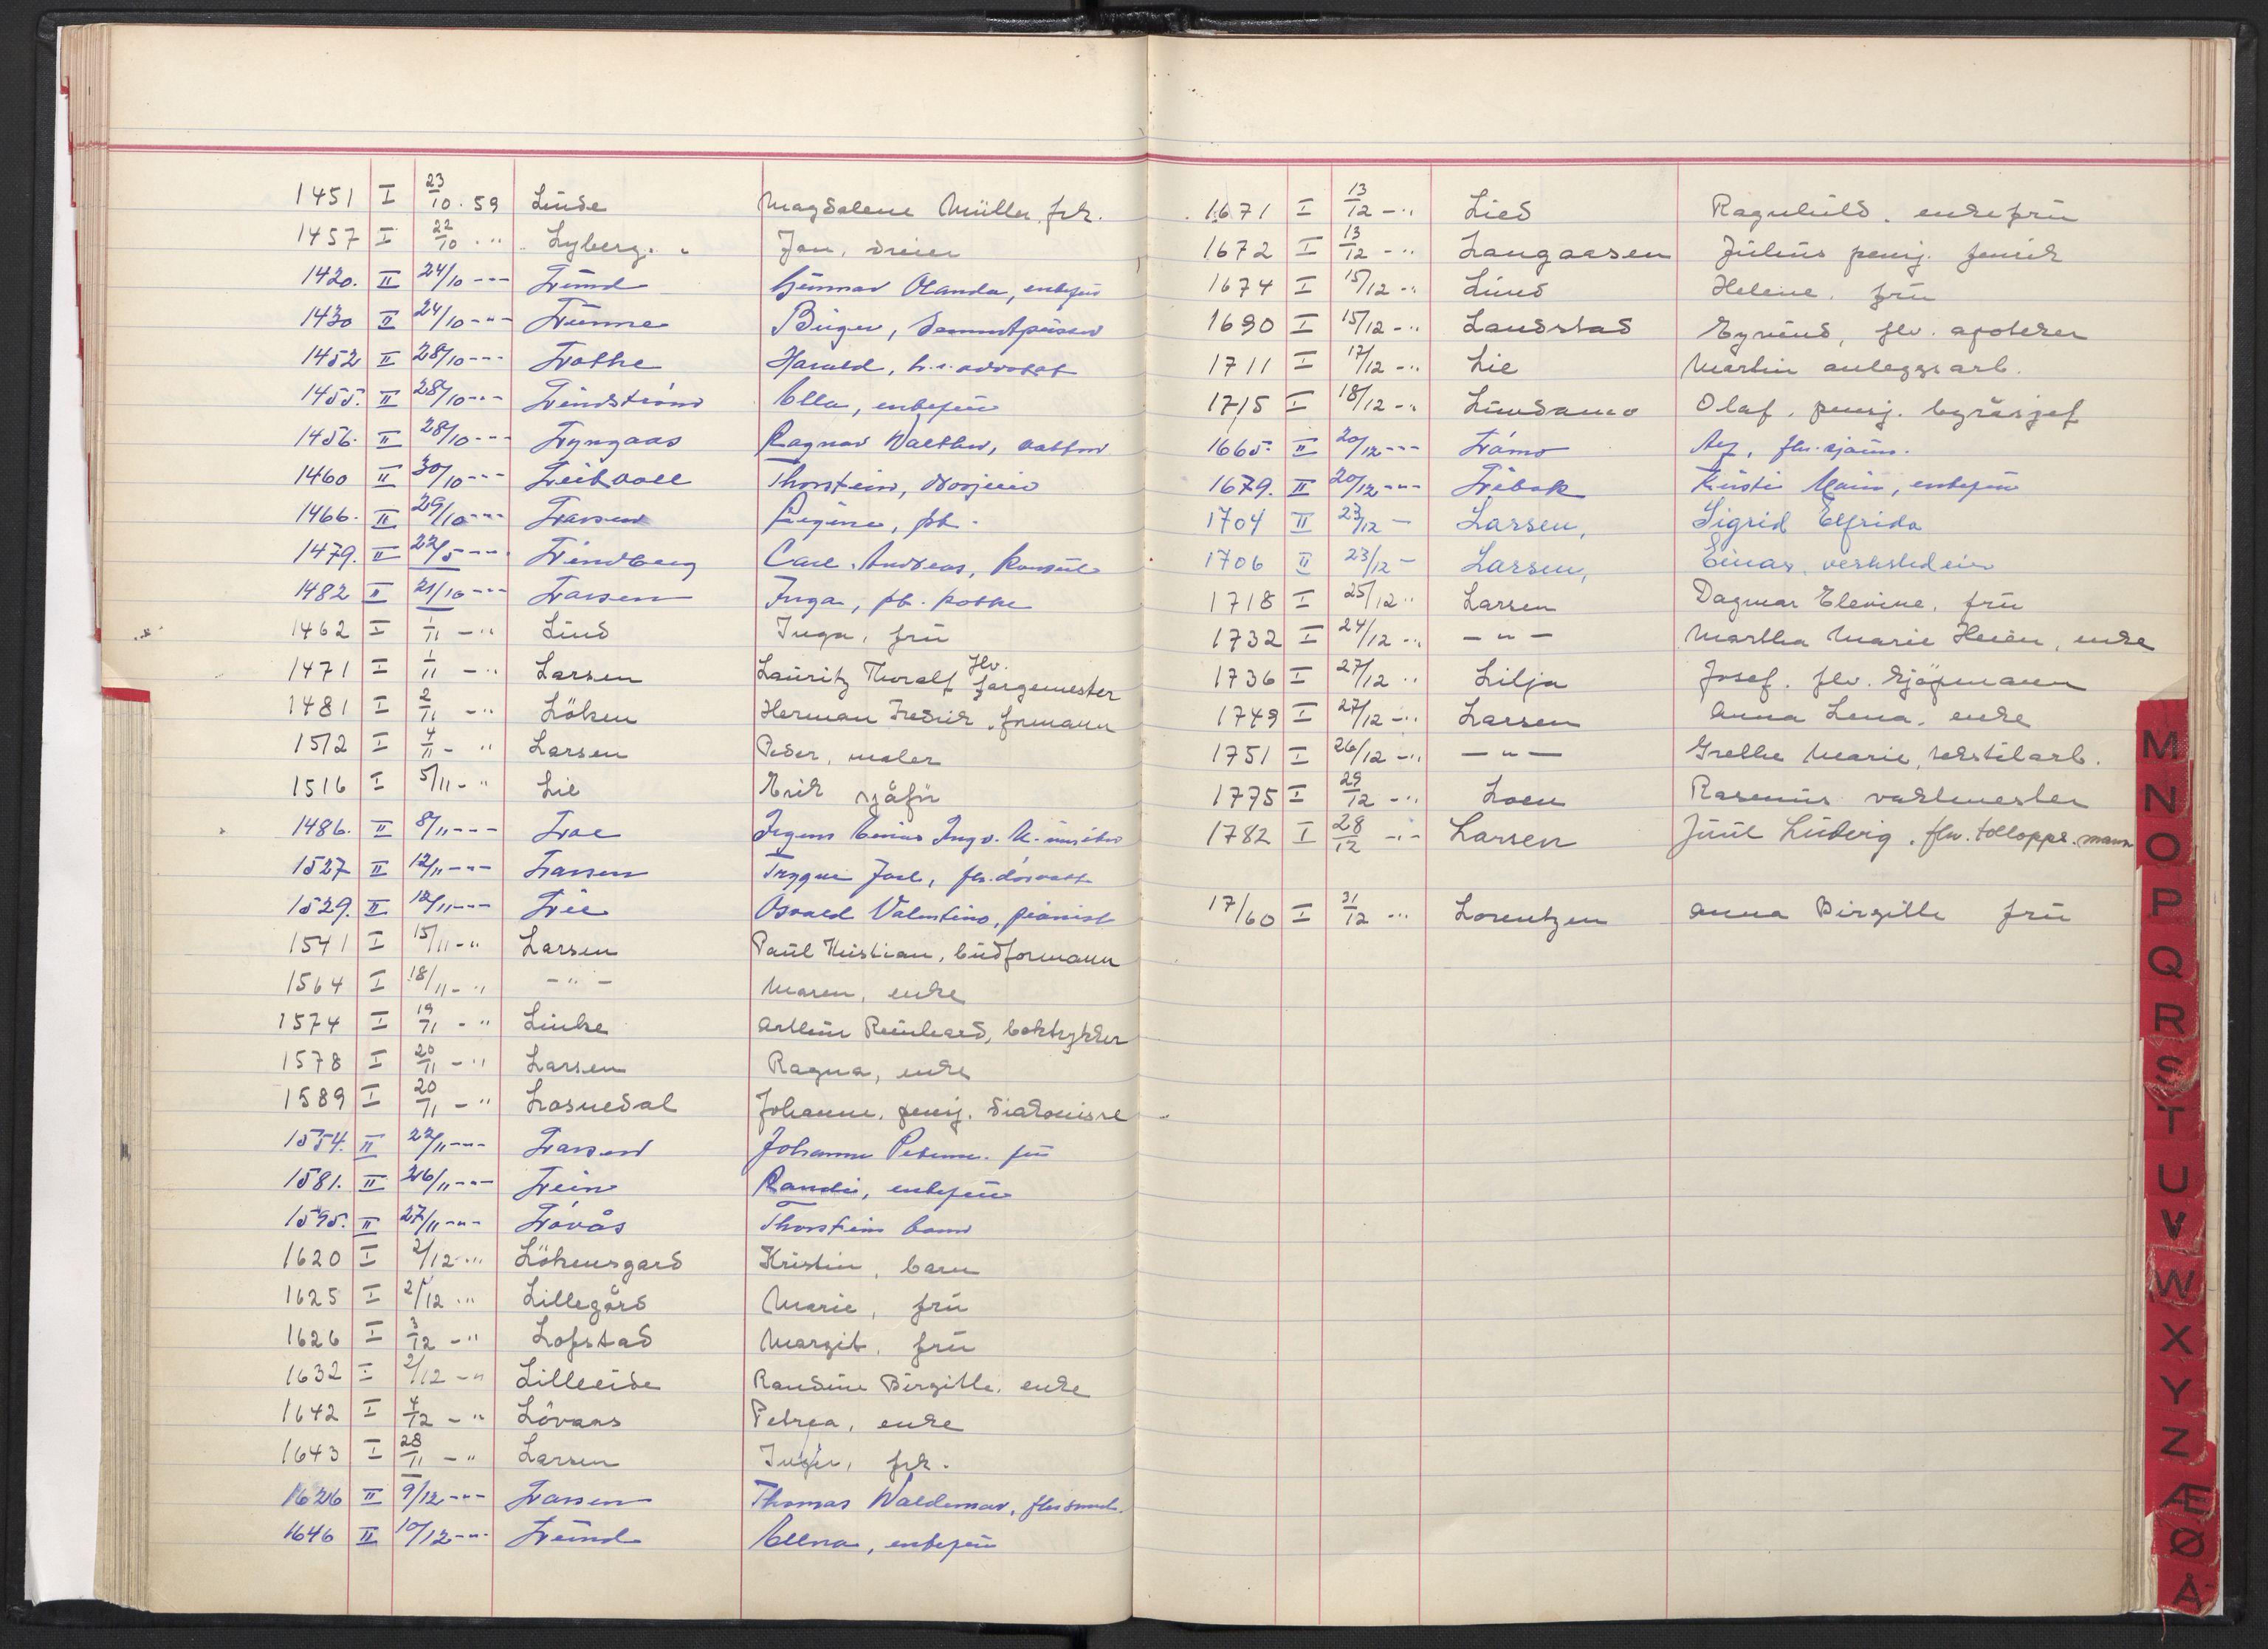 1451 I 23/10.59 Linde Magdalene Müller, frk.
1457 I 22/10 - " Lyberg. Jan, dreier
1420. II 24/10 --- Lund Gunnar Olanda, enkefrü
1430 II 24/10 -"- Lunne Birger,
1452 II 28/10 --- Lothe Harald, h.r. advokat
1455. II 28/10 --- Lindstrøm Ella, enkefrü
1456. II 28/10 --- Lyngaas Ragnar Walther,
1460 II 30/10 --- Leikvoll Thorstein,
1466. II 29/10 --- Larsen Regine, frk.
1479. II 22/5 --- Lindberg Carl Andreas, konsul
1482 II 21/10 --- Larsen Inga, fk. kokke
1462 I 1/11 - " Lind Inga, frü
1471 I 1/11 - " Larsen Lauritz Thoralf flv. fargemester
1481 I 2/11 - " Löken Herman Fredrik, formann
1512 I 4/11 - " Larsen Peder, maler
1516 I 5/11 - " Lie Erik sjåfør
1486. II 8/11 --- Loe
1527 II 12/11 --- Larsen Trygve
1529. II 12/11 --- Lie Osvald Valentino, pianist
1541 I 15/11 - " Larsen Paul Kristian, budformann
1564 I 18/11 - " - " - Maren, enke
1574 I 19/11 - " Linke Reinhard, boktrykker
1578 I 20/11 - " Larsen Ragna, enke
1589 I 20/11 - " Losnedal Johanne, pensj. diakonisse
1554. II 22/11 --- Larsen Johanne Petrine. frü
1581. II 26/11 --- Lein Randi, enkefrü
1595. II 27/11 -"- Løvås Thorstein barn
1620 I 2/12 - " Lökensgard Kristin, barn
1625 I 2/12 - " Lillegård Marie, frü
1626 I 3/12 - " Lofstad Margit, frü
1632 I 2/12 - " Lilleeide Randine Birgitte, enke
1642 I 4/12 - " Lövaas Petrea, enke
1643 I 28/11 - " Larsen Inger, frk.
1626 II 9/12 --- Larsen Thomas Waldemar,
1646 II 10/12 --- Lund Ellna, enkefrü
1671 I 13/12 - " Lied Ragnhild, enkefrü
1672 I 13/12 - " Langaasen Julius pensj.
1674 I 15/12 - " Lund Helene, frü
1690 I 15/12 - " Landstad Eyvind, flv. apoteker
1711 I 17/12 - " Lie Martin anleggsarb.
1715 I 18/12 - " Lindamo Olaf, pensj. byråsjef
1665. II 20/12 --- Låmo
1679. II 20/12 -"- Lebak enkefrü
1704 II 23/12 - Larsen, Sigrid Elfrida
1706 II 23/12 - Larsen, Einar, verkstedeier
1718 I 25/12 " Larsen Dagmar Elevine, frü
1732 I 24/12 - " - " - Martha Marie enke
1736 I 27/12 " Lilja Josef, flv. kjöpmann
1749 I 27/12 - " Larsen Anna Lena, enke
1751 I 26/12 - " - " - Grethe Marie, tekstilarb.
1775 I 29/12 - " Loen Rasmus vaktmester
1782 I 28/12 - " Larsen Juul Ludvig, flv. tolloppsmann
17/60 I 31/12 - " Lorentzen Anna Birgitte frü
M
N
O
P
Q
R
S
T
U
V
W
X
Y
Z
Æ
Ø
Å